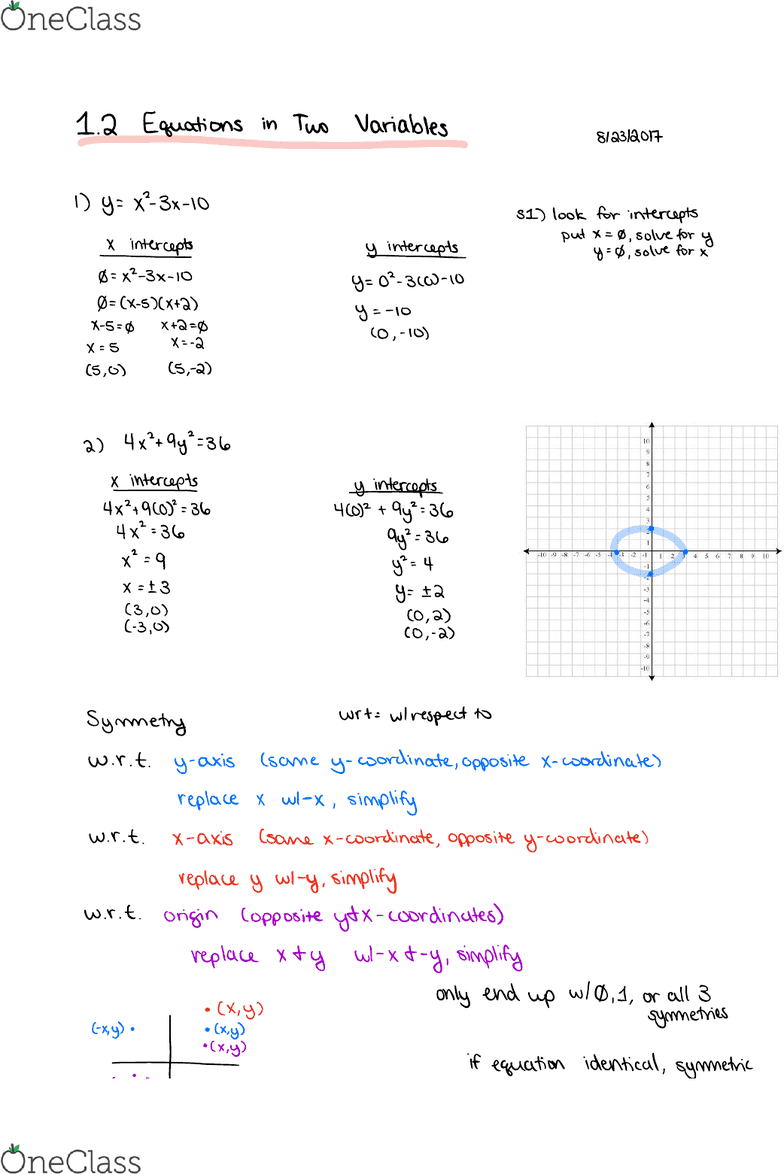 OneClass
1.2 Equations in Two Variables
8/23/2017
1) y = x²-3x-10
s1) look for intercepts
put x = Ø, solve for y
y = Ø, solve for x
x intercepts
Ø = x²-3x-10
Ø = (x-5)(x+2)
x-5=Ø x+2=Ø
x = 5 x = -2
(5,0) (5,-2)
y intercepts
y = 0²-3(0)-10
y = -10
(0,-10)
2) 4x²+9y²=36
x intercepts
4x²+9(0)²=36
4x²=36
x² = 9
x = ±3
(3,0)
(-3,0)
y intercepts
4(0)² + 9y²=36
9y²=36
y² = 4
y = ±2
(0,2)
(0,-2)
10
9
8
7
6
5
4
3
1
-10 -9 -8 -7 -6 -5 -4 -3 -2 -1 1 2 3 4 5 6 7 8 9 10
-1
-2
-3
-4
-5
-6
-7
-8
-9
-10
Symmetry wrt= w/respect to
w.r.t. y-axis (same y-coordinate, opposite x-coordinate)
replace x w/-x, simplify
w.r.t. x-axis (same x-coordinate, opposite y-coordinate)
replace y w/-y, simplify
w.r.t. origin (opposite y+x-coordinates)
replace x + y w/-x + -y, simplify
only end up w/Ø,1, or all 3
symmetries
(x,y)
(-x,y) (x,y)
(x,y)
if equation identical, symmetric
OneClass